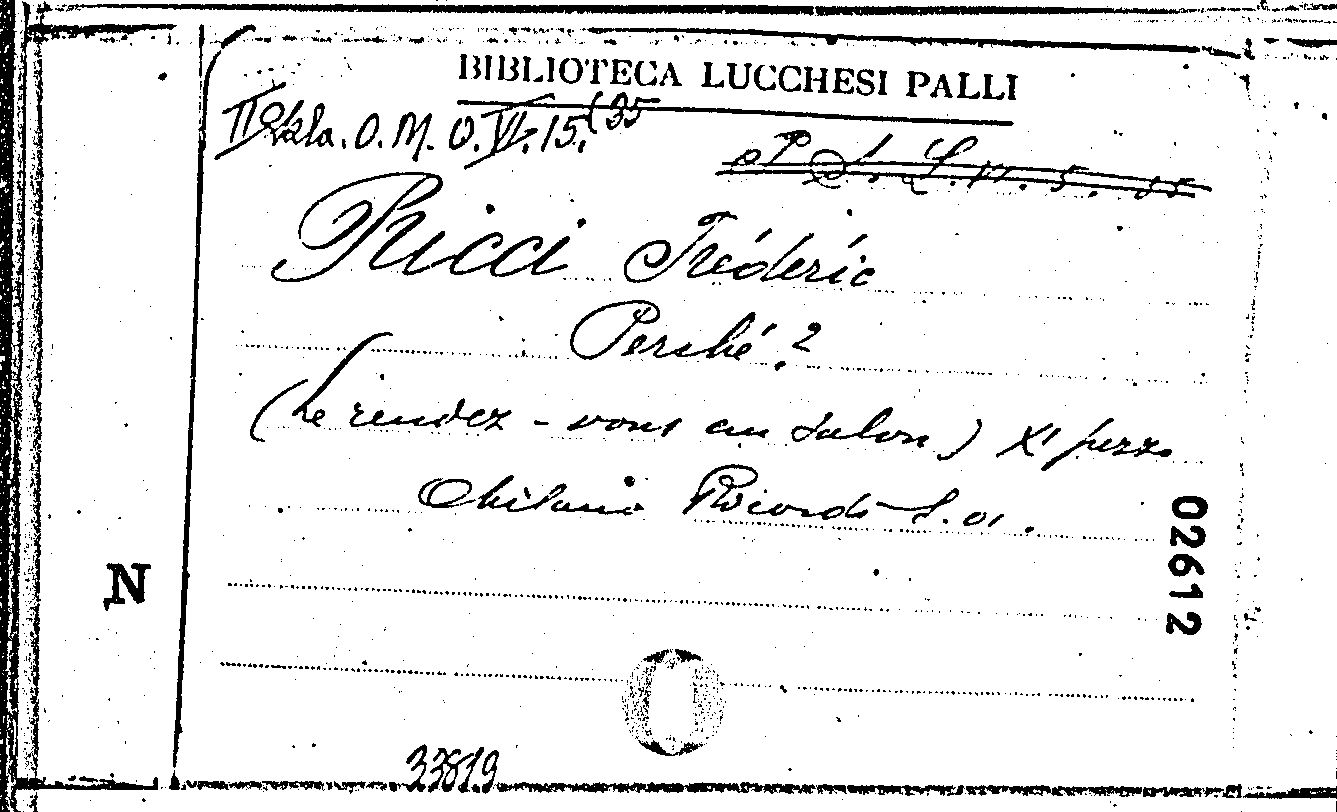 BIBLIOTECA LUCCHESI PALLI
II Sala. O. M. O. VI. 15.(35
Ricci Fréderic
Perché?
(Le rendez-vous au salon) XI pezzo
Milano Ricordi S.a.
02612
N
33819